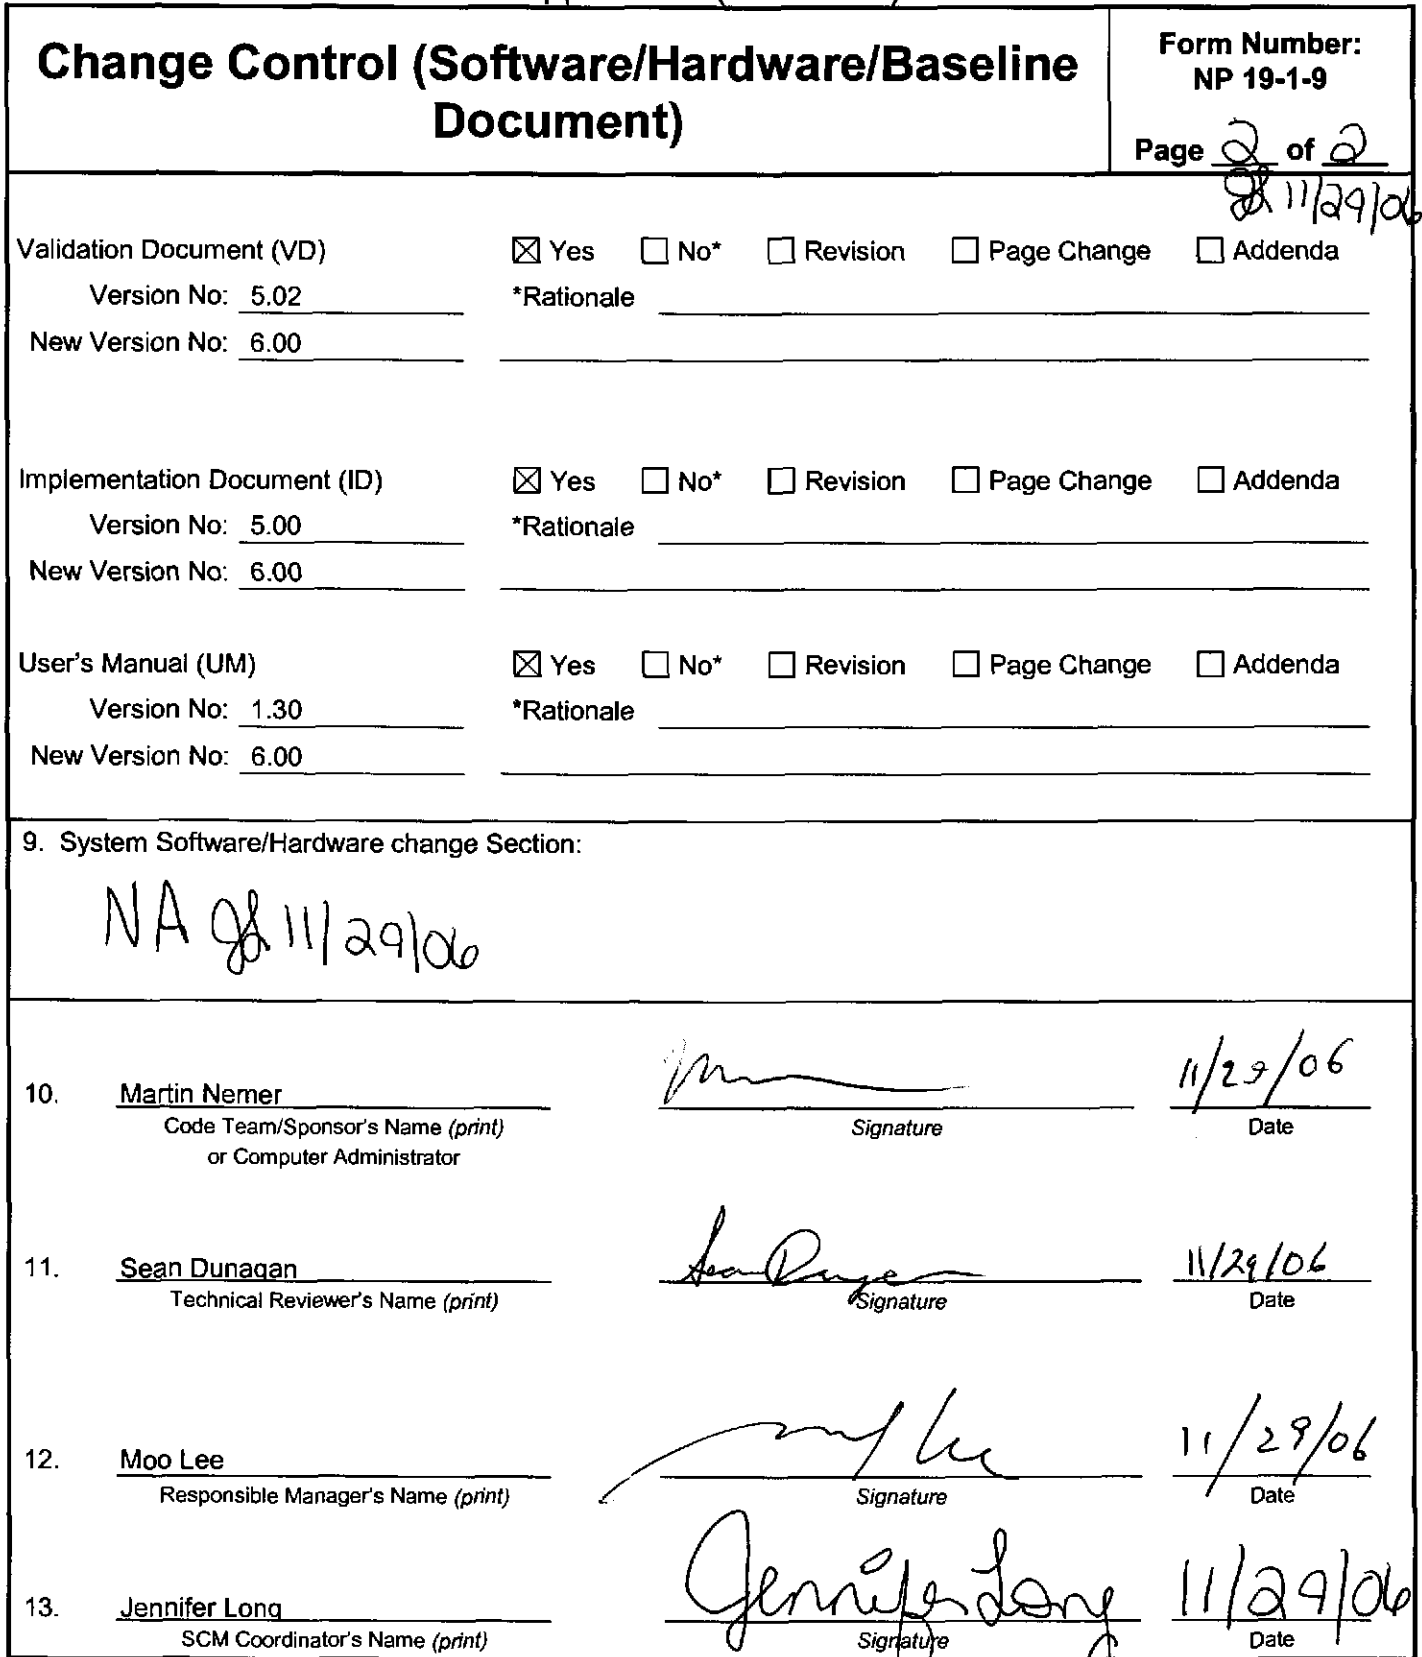 Change Control (Software/Hardware/Baseline
Document)
Form Number:
NP 19-1-9
Page 2 of 2
JL 11/29/06
Validation Document (VD) ☒ Yes ☐ No* ☐ Revision ☐ Page Change ☐ Addenda
Version No: 5.02 *Rationale
New Version No: 6.00
Implementation Document (ID) ☒ Yes ☐ No* ☐ Revision ☐ Page Change ☐ Addenda
Version No: 5.00 *Rationale
New Version No: 6.00
User's Manual (UM) ☒ Yes ☐ No* ☐ Revision ☐ Page Change ☐ Addenda
Version No: 1.30 *Rationale
New Version No: 6.00
9. System Software/Hardware change Section:
NA JL 11/29/06
10. Martin Nemer 11/29/06
Code Team/Sponsor's Name (print) Signature Date
or Computer Administrator
11. Sean Dunagan Sean Dunagan 11/29/06
Technical Reviewer's Name (print) Signature Date
12. Moo Lee 11/29/06
Responsible Manager's Name (print) Signature Date
13. Jennifer Long Jennifer Long 11/29/06
SCM Coordinator's Name (print) Signature Date